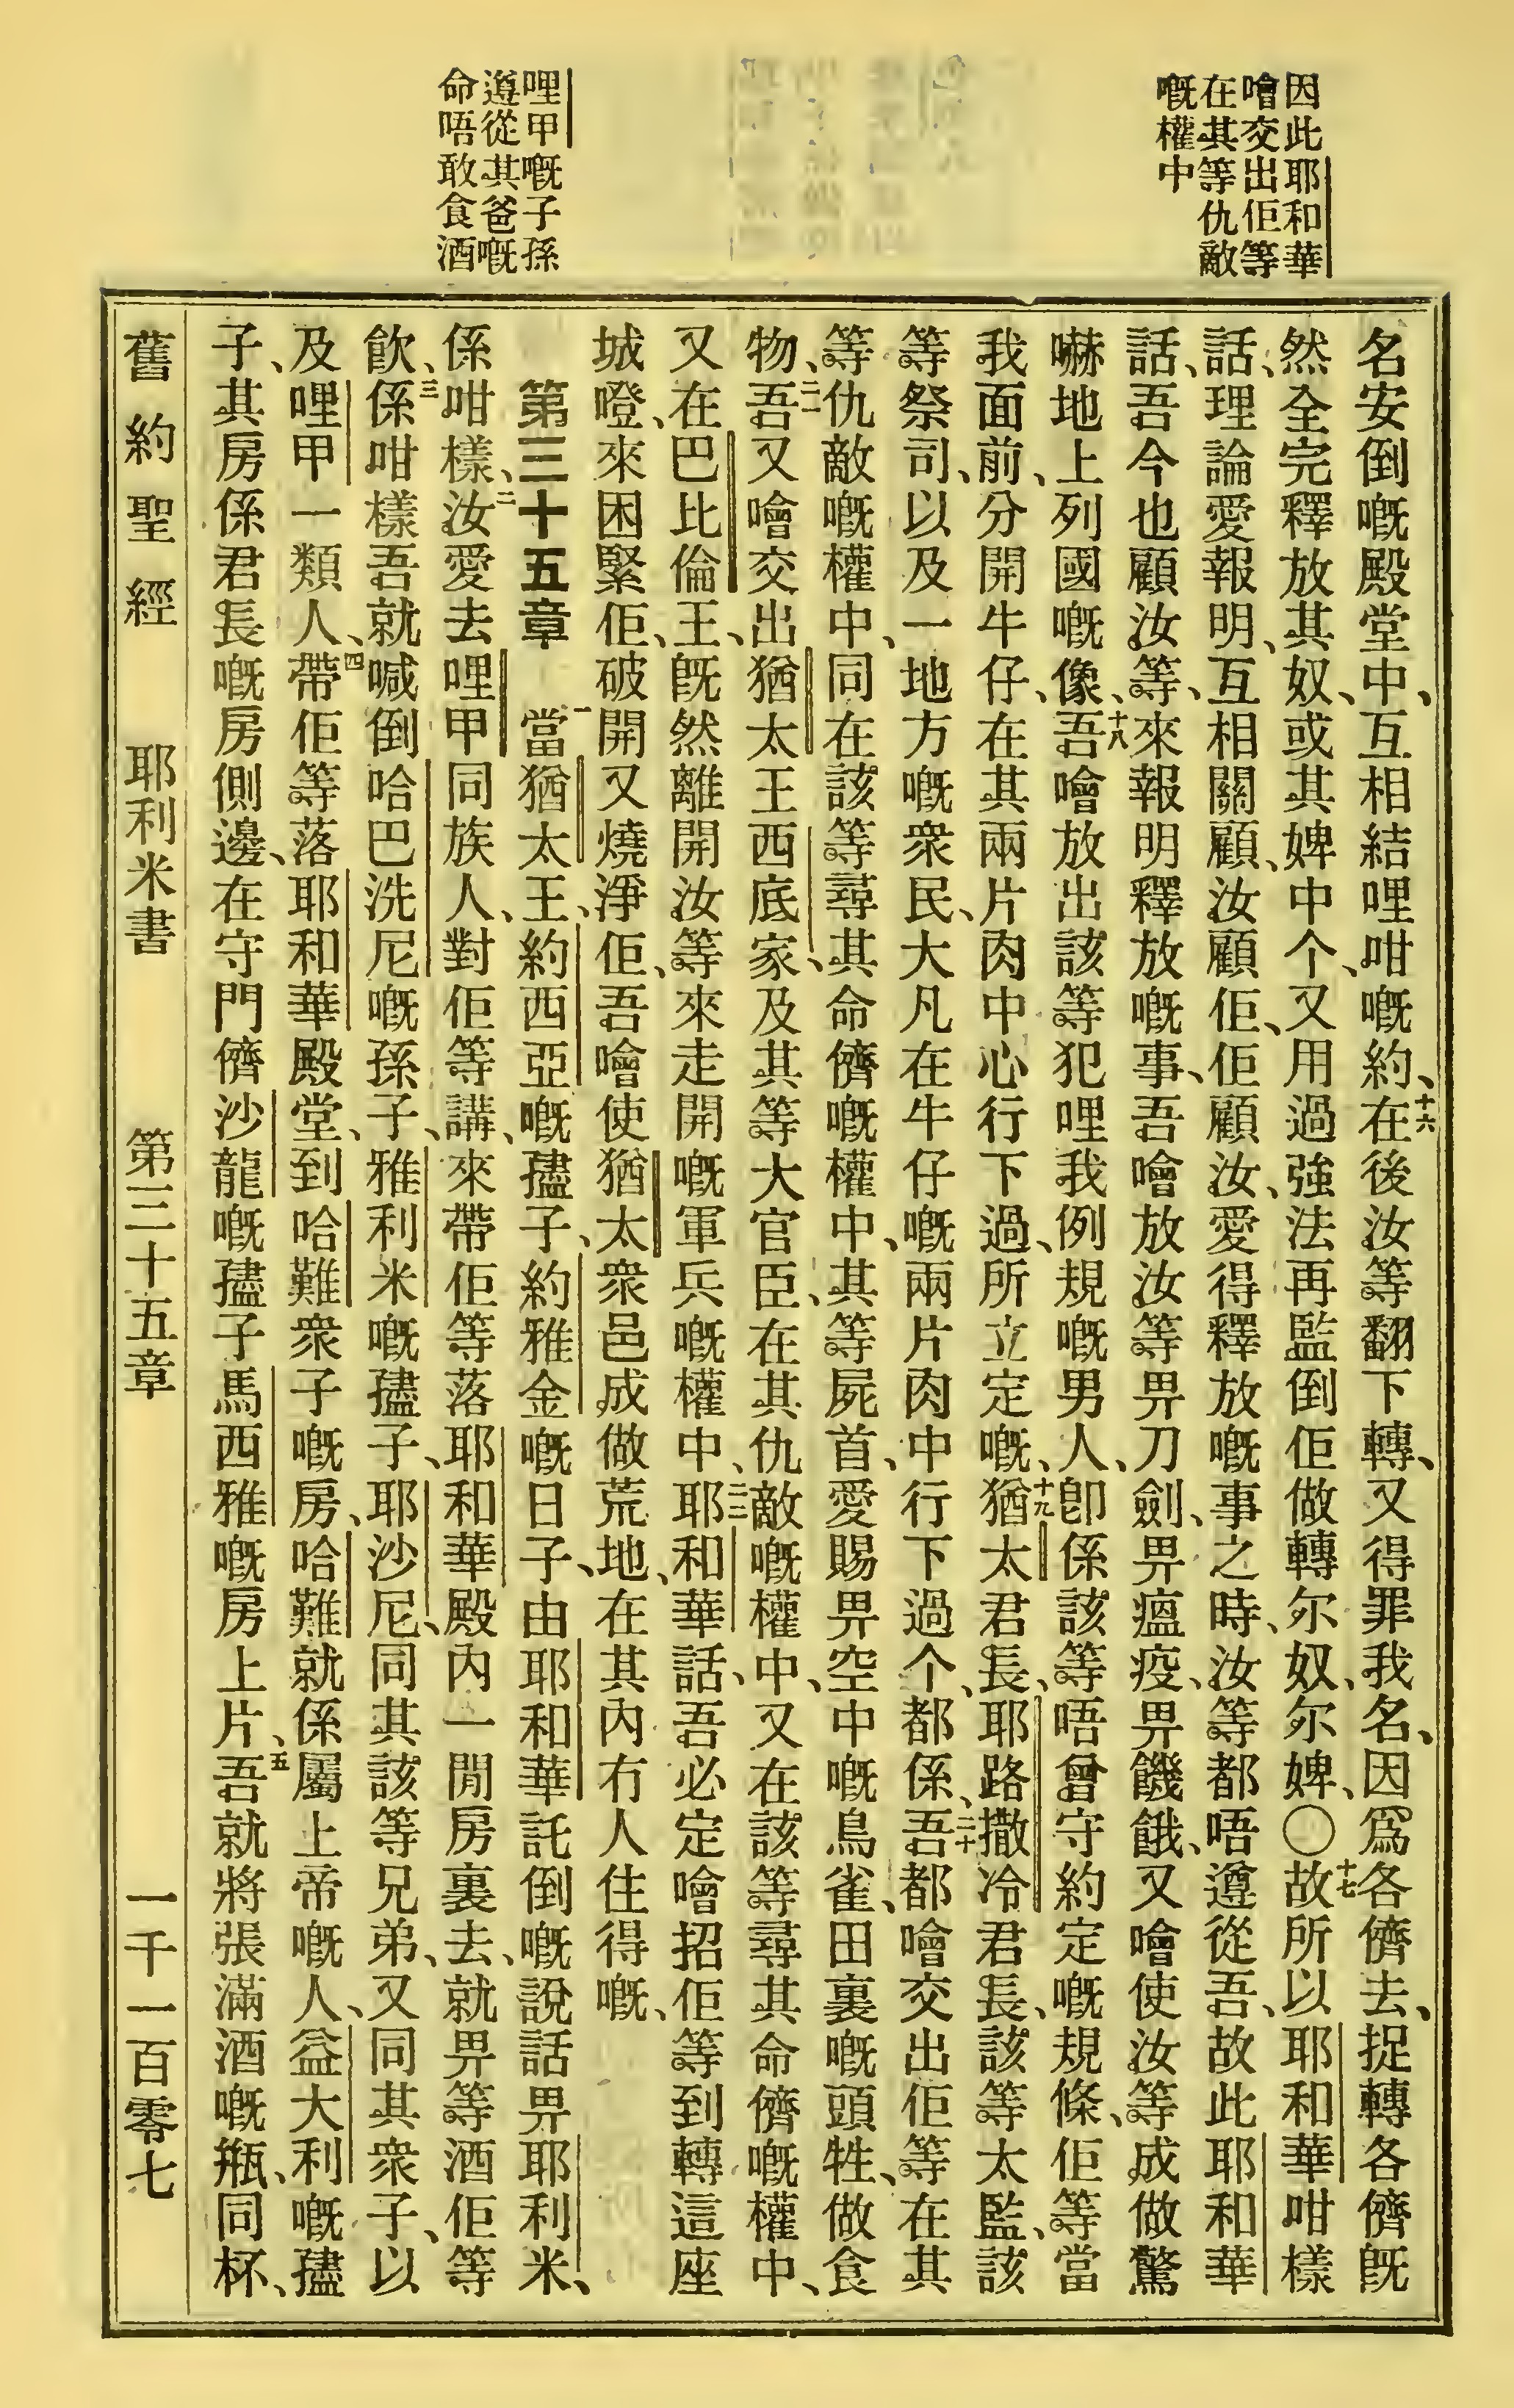 因此耶和華
噲交出佢等
在其等仇敵
嘅權中
哩甲嘅子孫
遵從其爸嘅
命唔敢食酒
名安倒嘅殿堂中、互相結哩咁嘅約、十六在後汝等翻下轉、又得罪我名、因爲各儕去、捉轉各儕既
然全完釋放其奴、或其婢中个、又用過強法再監倒佢做轉尔奴、尔婢、〇十七故所以耶和華咁樣
話、理論愛報明、互相關顧、汝顧佢、佢顧汝、愛得釋放嘅事之時、汝等都唔遵從吾、故此耶和華
話、吾今也顧汝等、來報明釋放嘅事、吾噲放汝等畀刀劍、畀瘟疫、畀饑餓、又噲使汝等成做驚
嚇地上列國嘅像、十八吾噲放出該等犯哩我例規嘅男人、卽係該等唔曾守約定嘅規條、佢等當
我面前、分開牛仔、在其兩片肉中心行下過、所立定嘅、十九猶太君長、耶路撒冷君長、該等太監、該
等祭司、以及一地方嘅衆民、大凡在牛仔嘅兩片肉中行下過个、都係、二十吾都噲交出佢等在其
等仇敵嘅權中、同在該等尋其命儕嘅權中、其等屍首、愛賜畀空中嘅鳥雀、田裏嘅頭牲、做食
物、二一吾又噲交出猶太王西底家、及其等大官臣、在其仇敵嘅權中、又在該等尋其命儕嘅權中、
又在巴比倫王、既然離開汝等來走開嘅軍兵嘅權中、二二耶和華話、吾必定噲招佢等到轉這座
城嶝、來困緊佢、破開又燒淨佢、吾噲使猶太衆邑成做荒地、在其內冇人住得嘅、
第三十五章　一當猶太王、約西亞嘅孻子、約雅金嘅日子、由耶和華託倒嘅說話畀耶利米、
係咁樣、二汝愛去哩甲同族人、對佢等講、來帶佢等落耶和華殿內一間房裏去、就畀等酒佢等
飮、三係咁樣吾就喊倒哈巴洗尼嘅孫子、雅利米嘅孻子、耶沙尼、同其該等兄弟、又同其衆子、以
及哩甲一類人、四帶佢等落耶和華殿堂、到哈難衆子嘅房、哈難就係屬上帝嘅人、益大利嘅孻
子、其房係君長嘅房側邊、在守門儕沙龍嘅孻子馬西雅嘅房上片、五吾就將張滿酒嘅瓶、同杯、
舊約聖經　耶利米書　第三十五章　一千一百零七